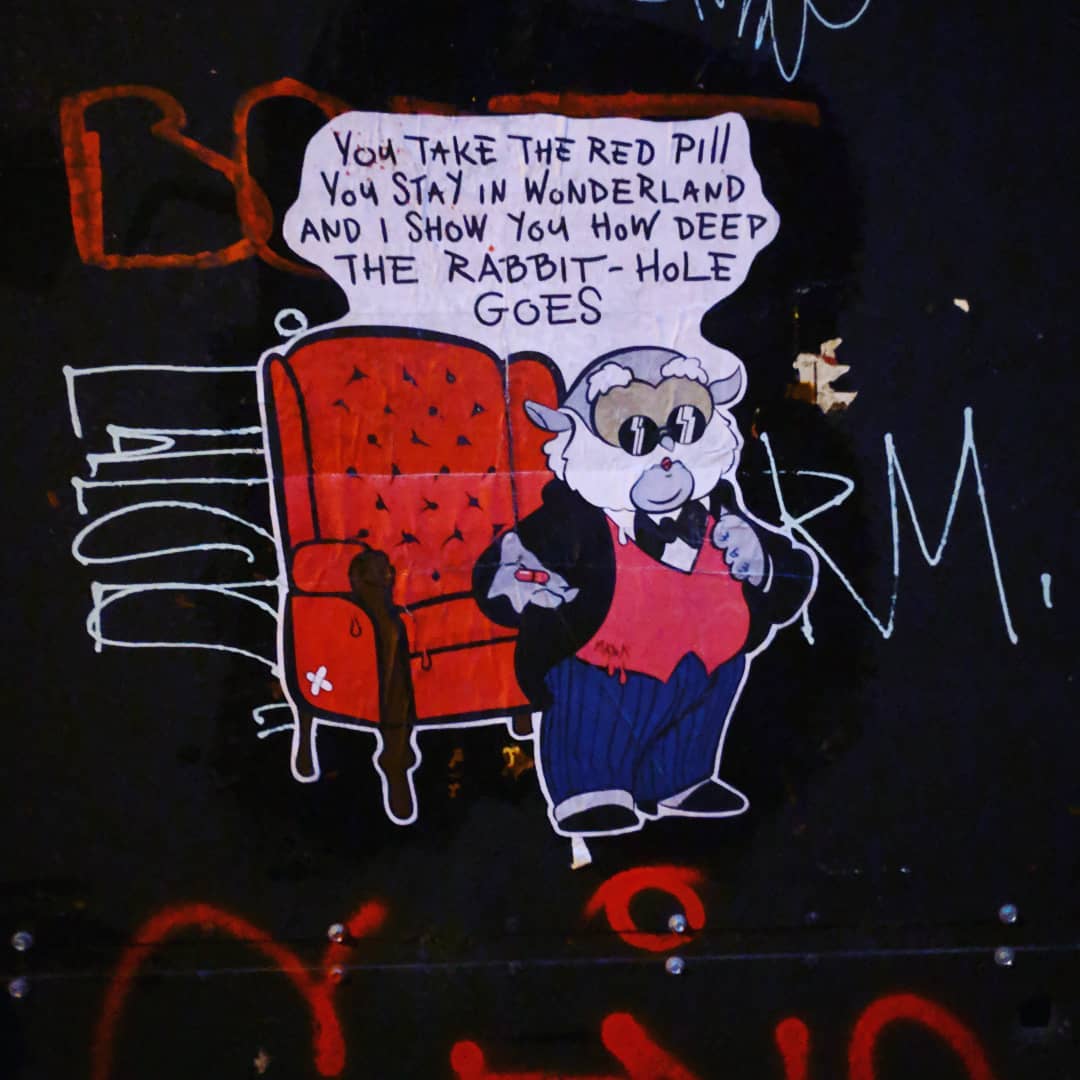 YOU TAKE THE RED PIll
YOU STAY IN WONDERLAND
AND I SHOW YOU HOW DEEP
THE RABBIT-HOLE
GOES
RM.